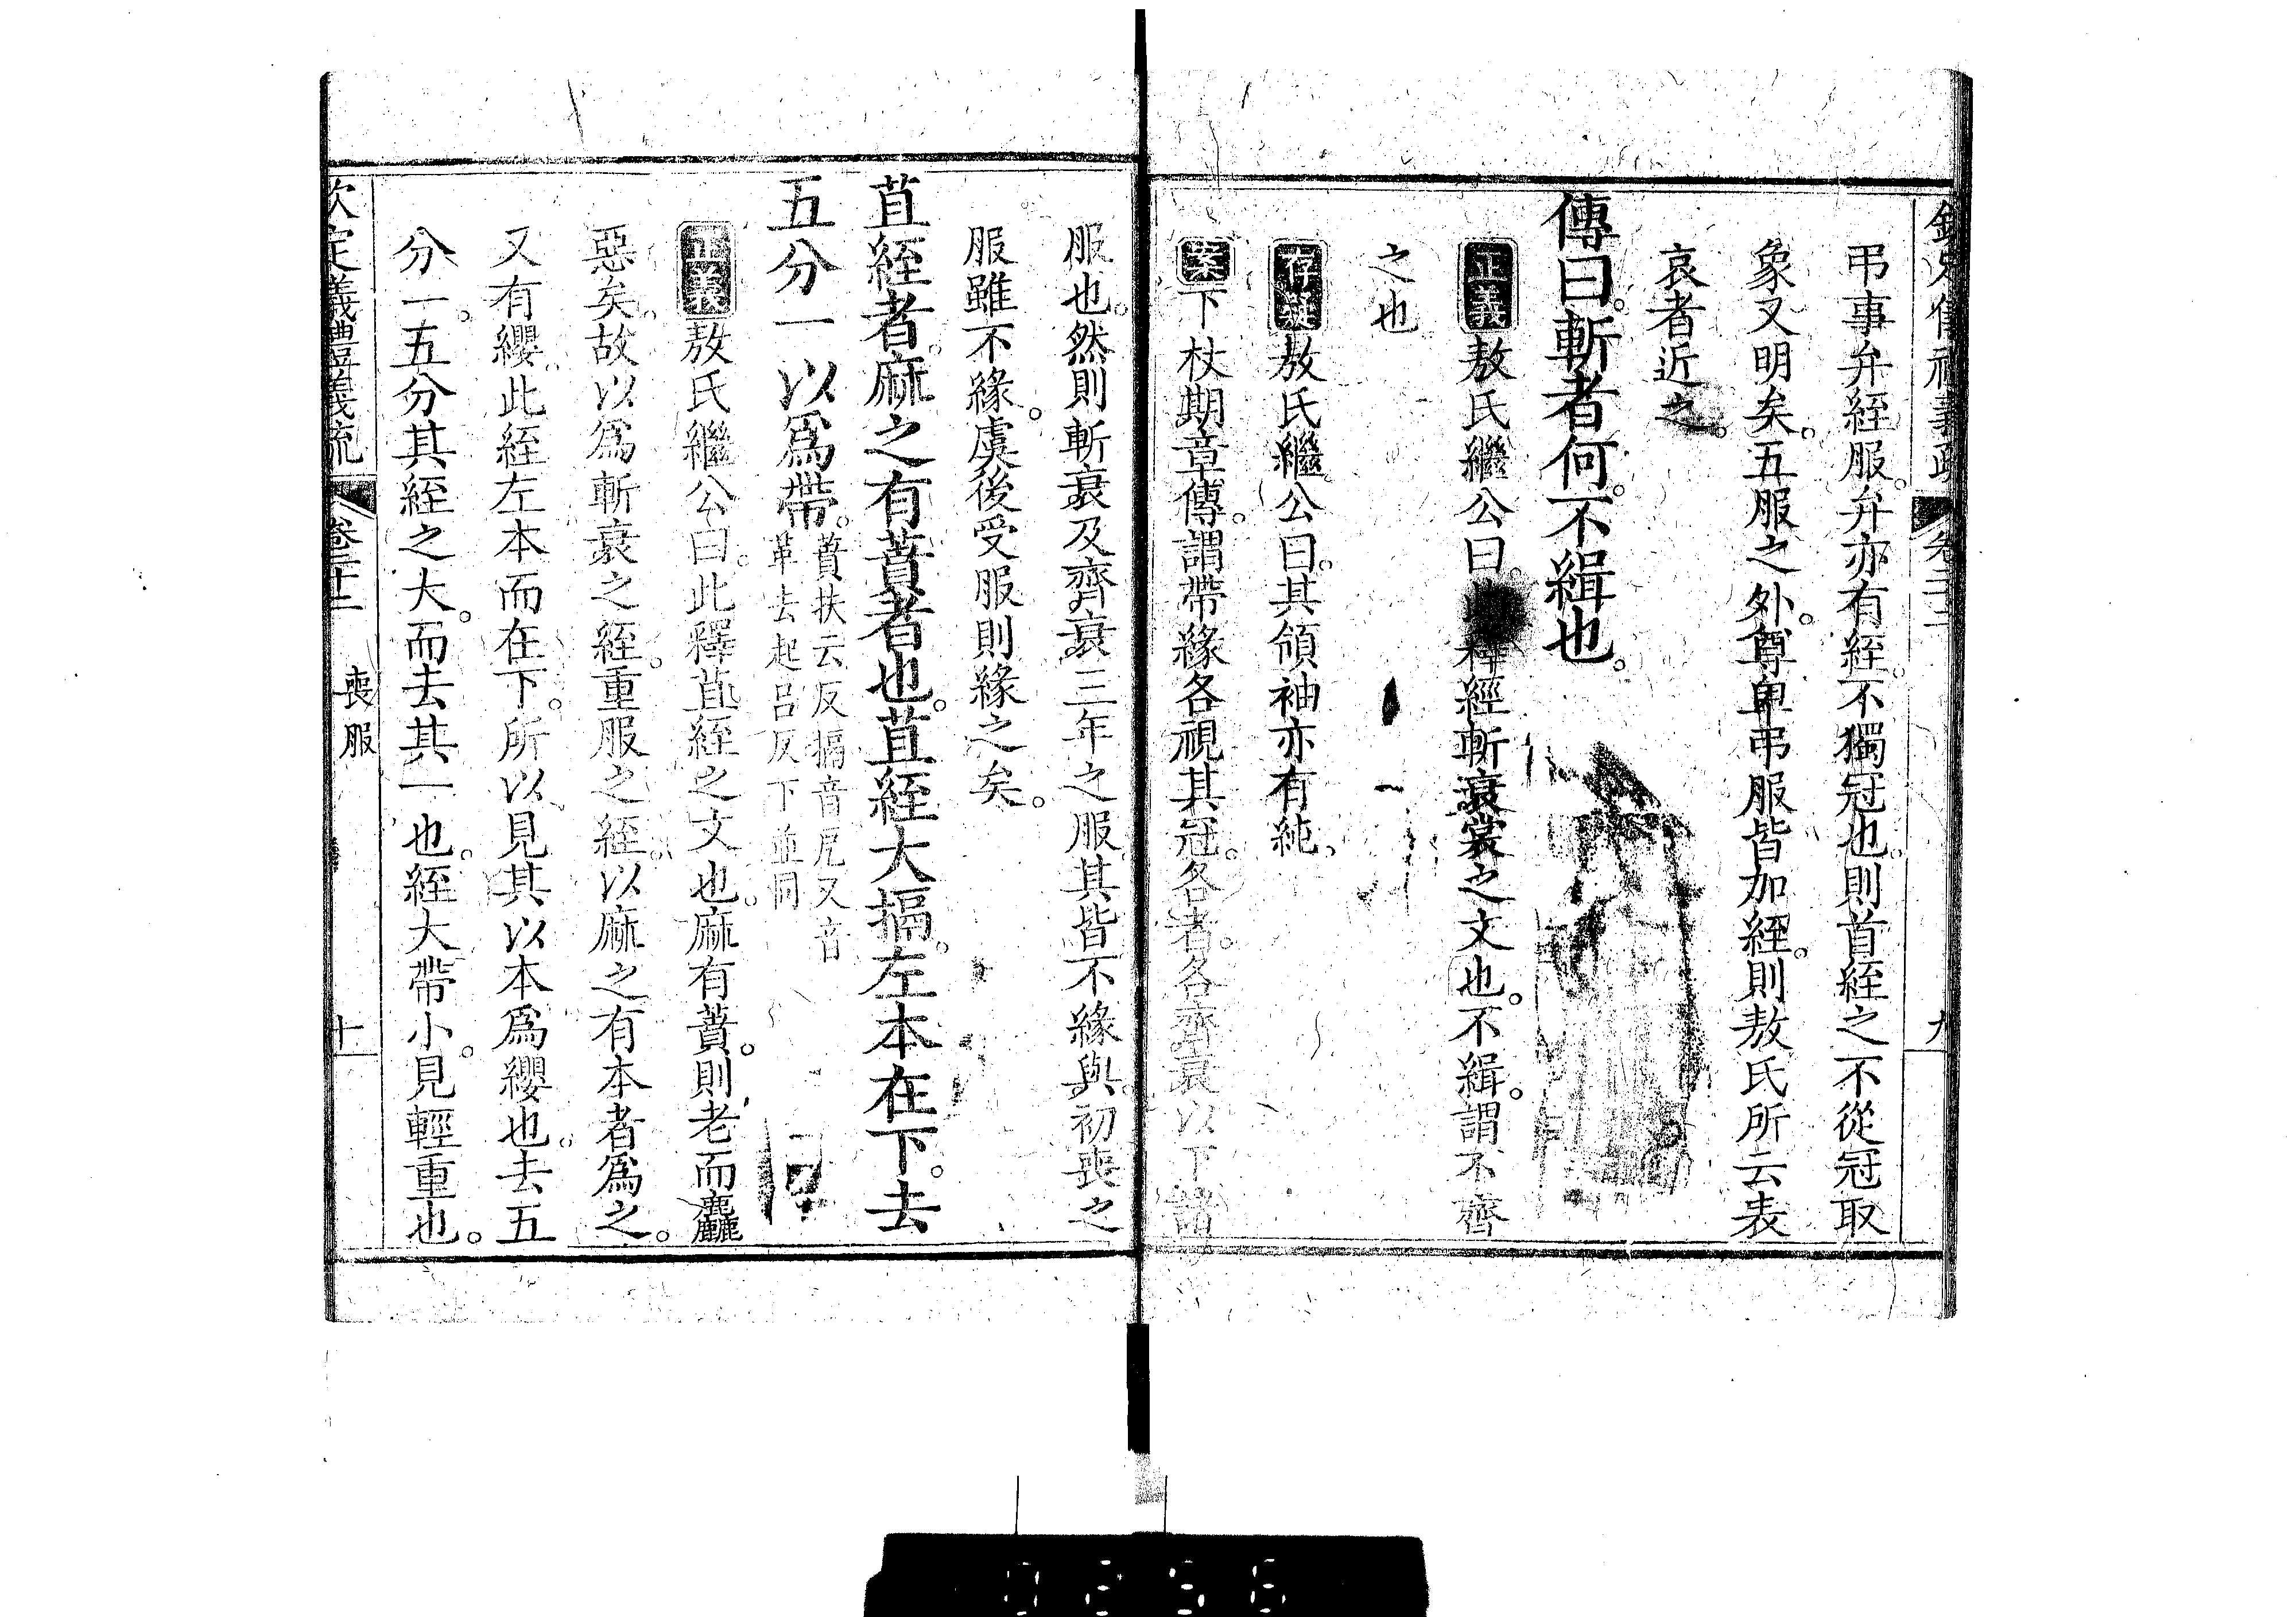 弔事弁絰服。弁亦有絰。不獨冠也。則首絰之不從冠取
象又明矣。五服之外。尊卑弔服皆加絰。則敖氏所云表
哀者近之。
傳曰。斬者何。不緝也。
正義敖氏繼公曰。釋經斬衰裳之文也。不緝。謂不齊
之也
存疑敖氏繼公曰。其領袖亦有純。
案下杖期章傳。謂帶緣各視其冠。各者。各齊衰以下諸
服也。然則斬衰及齊衰三年之服其皆不緣與。初喪之
服雖不緣。虞後受服則緣之矣。
苴絰者。麻之有蕡者也。苴絰大搹。左本在下。去
五分一以爲帶。蕡扶云反搹音戹又音
革去起呂反下並同
正義敖氏繼公曰。此釋苴絰之文也。麻有蕡。則老而麤
惡矣。故以爲斬衰之絰。重服之絰。以麻之有本者爲之。
又有纓。此絰左本而在下。所以見其以本爲纓也。去五
分一。五分其絰之大。而去其一也。絰大帶小。見輕重也。
欽定義禮義疏 卷二十二 喪服 十
0256